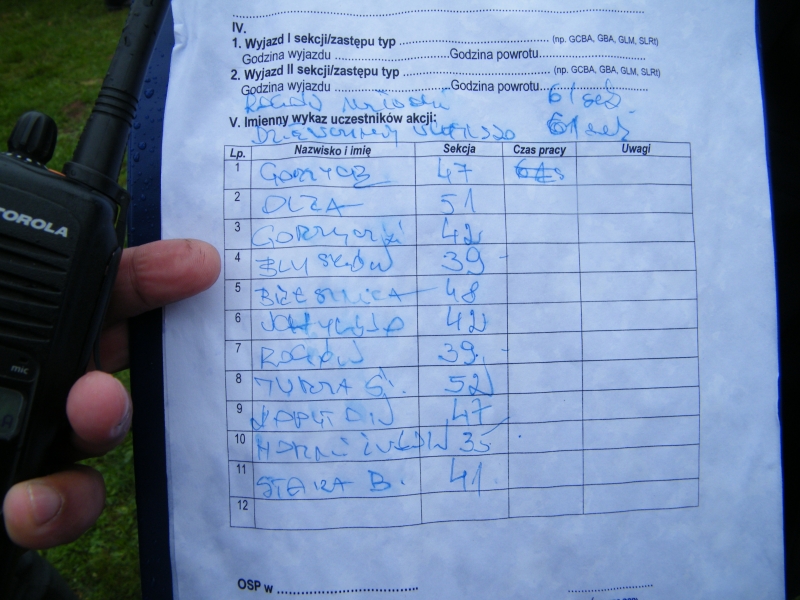 IV.
1. Wyjazd I sekcji/zastępu typ (np. GCBA, GBA, GLM, SLRt)
Godzina wyjazdu Godzina powrotu
2. Wyjazd II sekcji/zastępu typ (np. GCBA, GBA, GLM, SLRt)
Godzina wyjazdu Godzina powrotu
61 sek.
V. Imienny wykaz uczestników akcji:
61 sek
Lp. Nazwisko i imię Sekcja Czas pracy Uwagi
1 GORZYCE 47
2 OLZA 51
3 GORZYCZKI 42
4 BLUSZCZÓW 39
5 47 48
6 42
7 ROGÓW 39
8 TURZA ŚL. 52
9 47
10 35
11 STARA B. 41
12
OSP w
TOROLA
mic